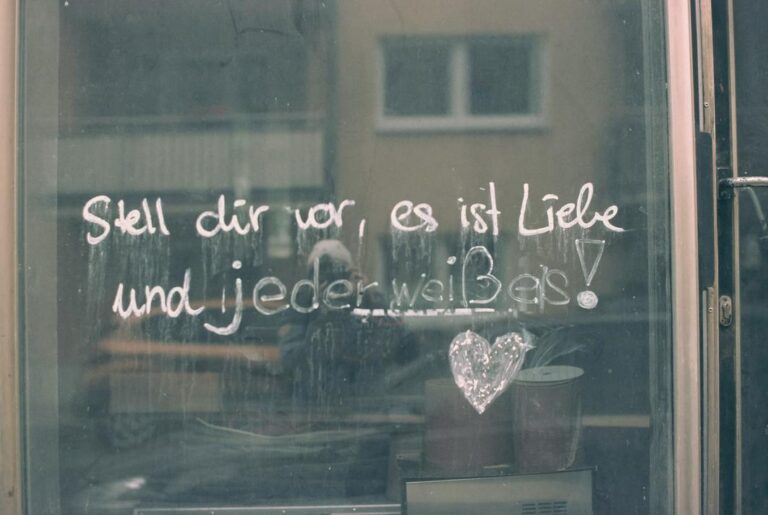 Stell dir vor, es ist Liebe
und jeder weiß es!